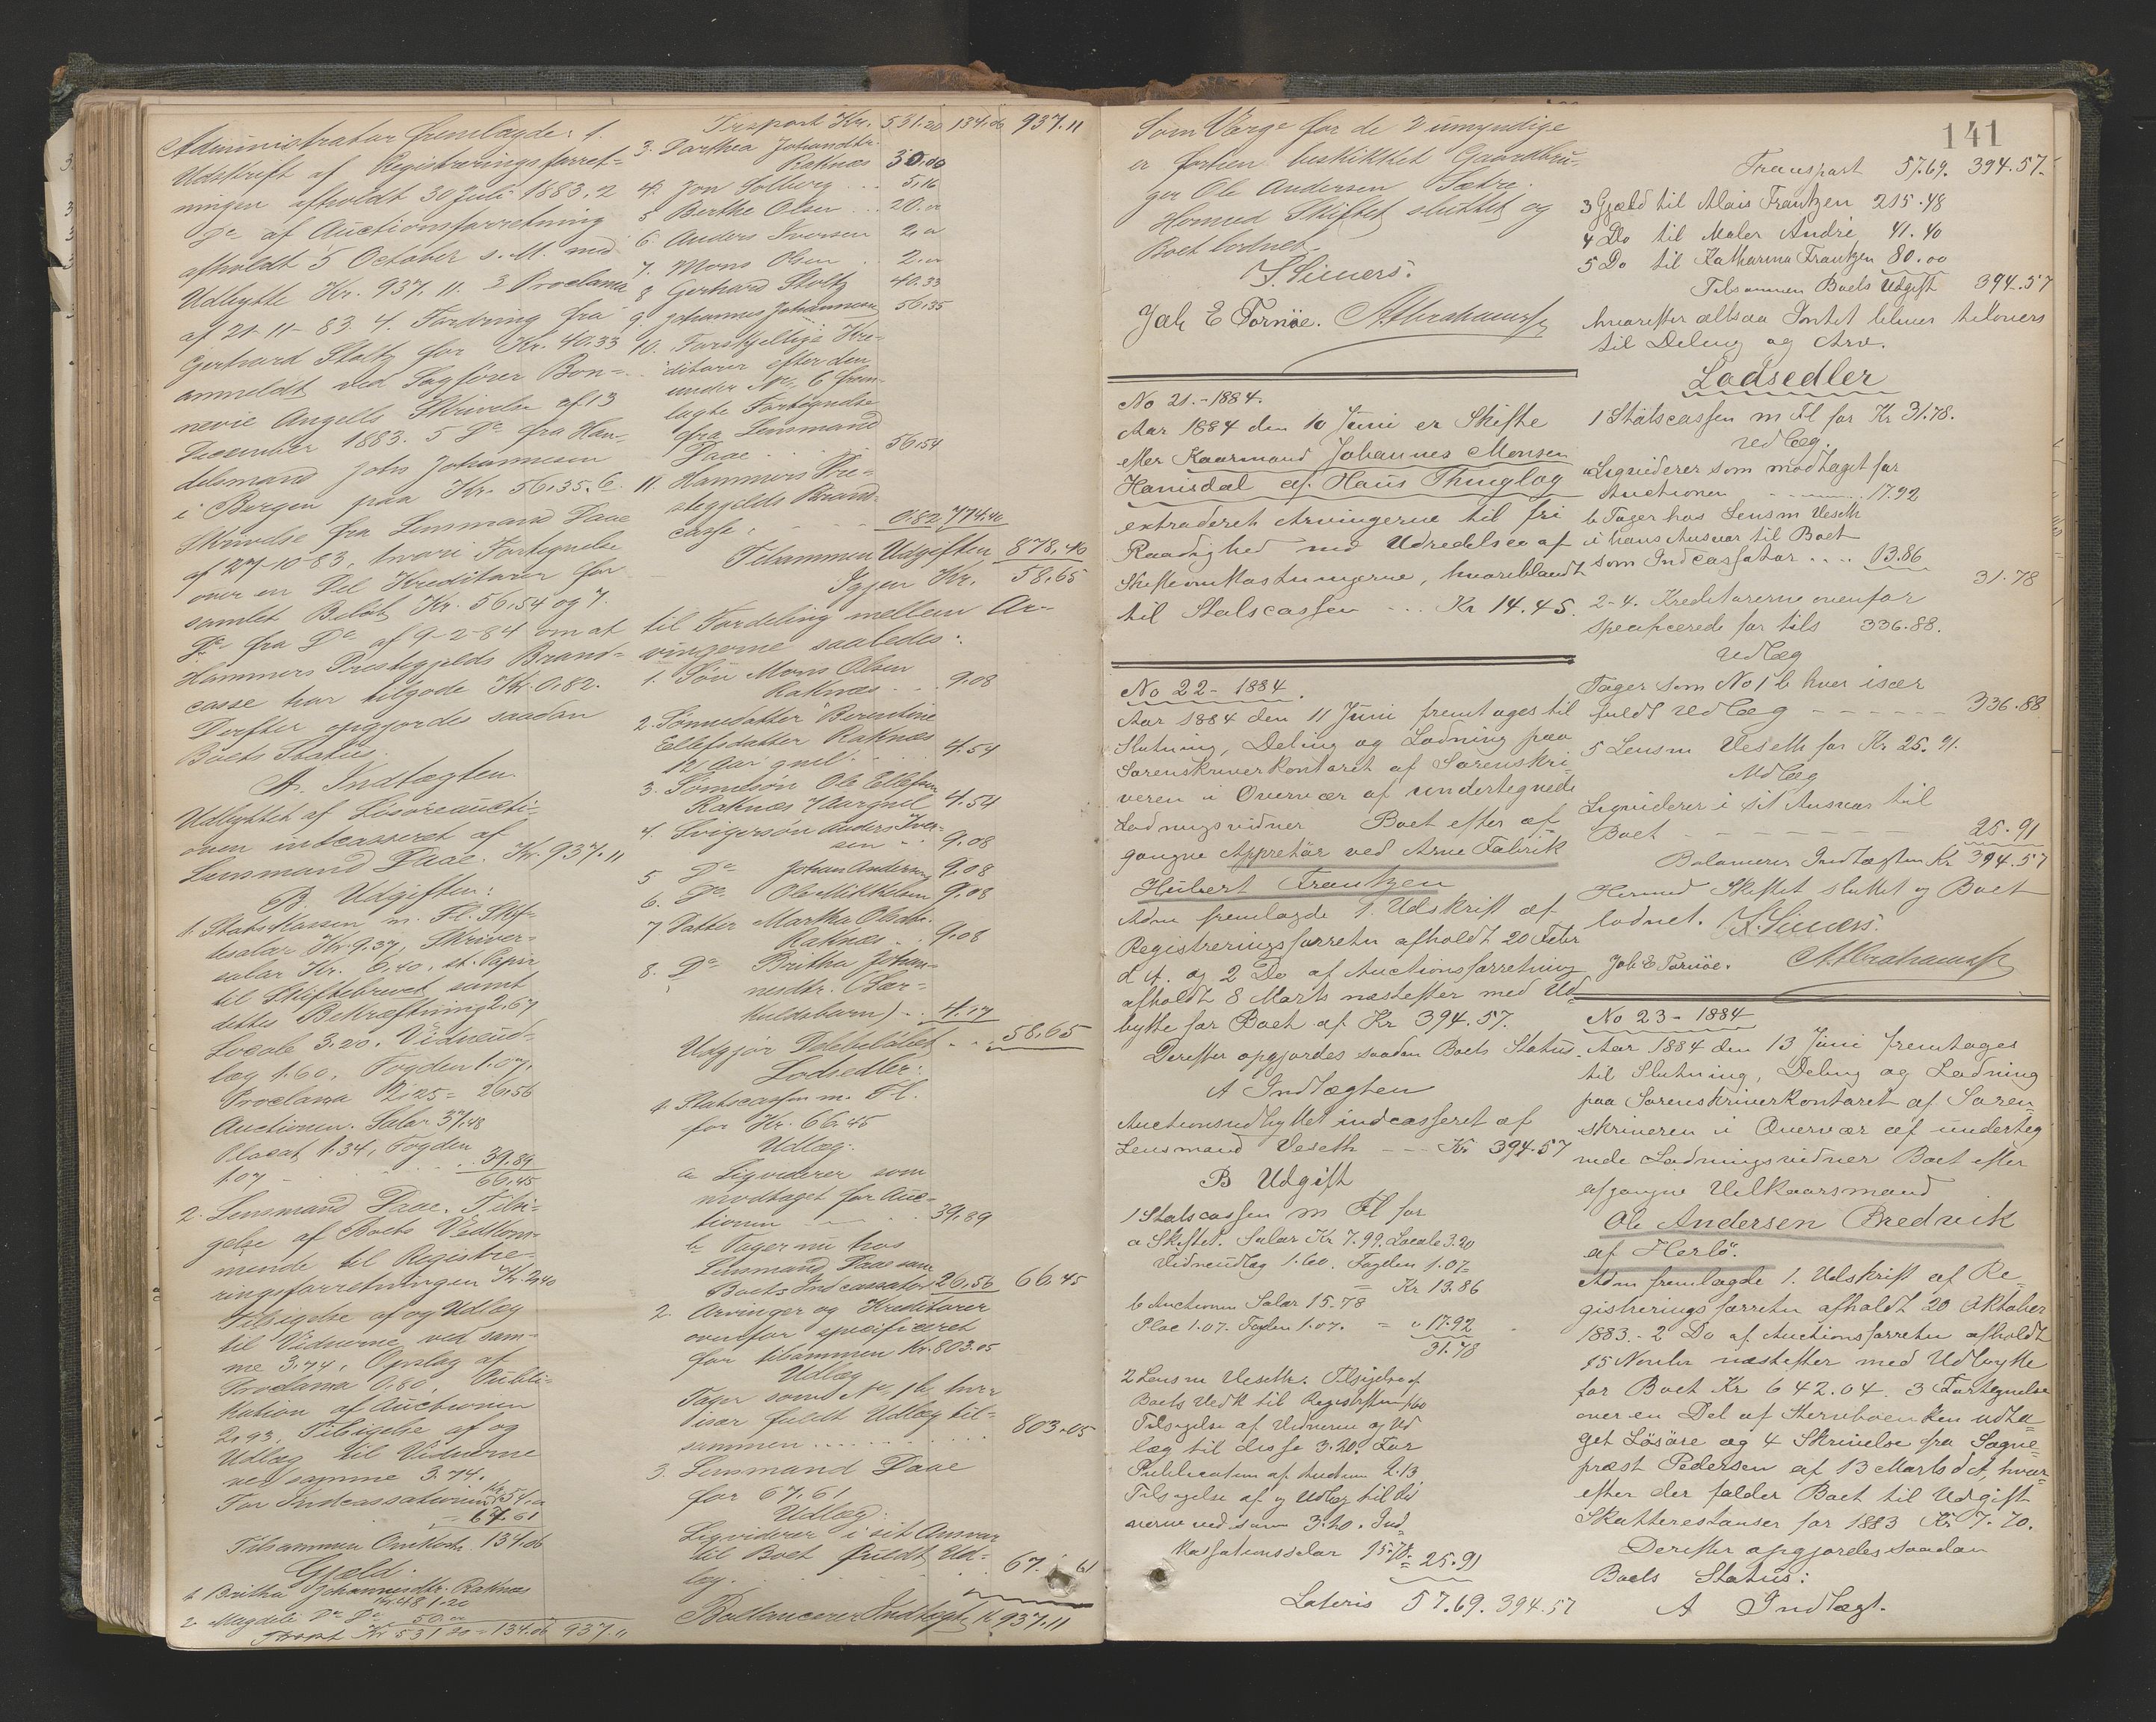 Administrator fremlagde: 1.
Udskrift af Registreringsforret=
ningen afholdt 30 Juli 1883, 2
Do af Auctionsforretning
afholdt 5 October s. A. med
Udbytte Kr. 937.11. 3 Proclama
af 21-11-83. 4. Fordring fra
Gerhard Stoltz for Kr. 40.33
anmeldt ved Sagfører Bon=
nevie Angells Skrivelse af 13
December 1883. 5 Do fra Han-
delsmand Johs Johannesen
i Bergen paa Kr. 56.35. 6.
Skrivelse fra Lensmand Daae
af 27-10-83, hvori Fortegnelse
over en Del Kreditorer for
samlet Beløb Kr. 56.54 og 7.
Do fra Do af 9-2-84 om at
Hammers Prestegjelds Brand=
casse har tilgode Kr. 0.82.
Derefter opgjordes saadan
Boets Status
A. Indtægten
Udbyttet af Løsøreaucti=
onen indcasseret af
Lensmand Daae. Kr. 937.11
B. Udgiften:
1. Statskassen m. Fl. Skif=
tesalar Kr. 9.37, Skriver=
salar Kr. 6.40, st. Papir
til Skiftebrevet samt
dettes Bekræftning 2.67
Locale 3.20. Vidneud=
læg 1.60, Fogden 1.07.
Proclama 2.25 = 26.56
Auctionen. Salar 37.48
Placat 1.34, Fogden
1.07 - . . . 39.89
66.45
2. Lensmand Daae. Tilsi=
gelse af Boets Vedkom=
mende til Registre=
ringsforretningen Kr. 2.40
Tilsigelse af og Udlæg
til Vidnerne ved sam=
me 3.74, Opslag af
Proclama 0.80, Publi=
kation af Auctionen
2.93, Tilsigelse af og
Udlæg til Vidnerne
ved samme 3.74.
For Indcassationen Kr. 54.00
= 67.61
Tilsammen Omkostn. 134.06
Gjæld.
1. Britha Johannesdtr. Raknæs
Kr. 481.20
2. Magdeli Do Do 50.00
Trspt Kr. 531.20 = 134.06 937.11
Trsport Kr. 531.20 134.06 937.11
3. Dorthea Johansdtr.
Raknæs 30.00
4. Jon Solberg . . . 5.16
5 Berthe Olsen . . . 20.00
6. Anders Iversen 2.00
7. Mons Olsen . 2.00
8 Gerhard Stoltz 40.33
9. Johannes Johannesen 56.35
10. Forskjellige Kre=
ditorer efter den
under No 6 frem-
lagte Fortegnelse
fra Lensmand
Daae . . . 56.54
11. Hammers Præ=
stegjelds Brand-
casse . - - - 0.82 744.40
Tilsammen Udgiften 878.46
Igjen Kr. 58.65
til Fordeling mellem Ar=
vingerne saaledes:
1. Søn Mons Olsen
Raknæs . . . 9.08
2. Sønnedatter Berentine
Ellefsdatter Raknæs
12 Aar gml. . . 4.54
3. Sønnesøn Ole Ellefsen
Raknæs 7 Aar gml 4.54
4. Svigersøn Anders Iver-
sen . . 9.08
5 Do Johan Andersen 9.08
6. Do Ole Mikkelsen 9.08
7 Datter Marthe Olsdtr.
Raknæs . . 9.08
8. Do Britha Johan=
nesdtr. (Sær=
kuldsbarn) . . 4.17
Udgjør Delebeløbet . . . 58.65
Lodsedler:
1. Statscassen m. Fl.
for Kr. 66.45
Udlæg:
a Ligviderer som
modtaget for Auc=
tionen . . 39.89
b Tager nu hos
Lensmand Daae som
Boets Indcassator 26.56 66.45
2. Arvinger og Kreditorer
ovenfor specificeret
for tilsammen Kr. 803.05
Udlæg
Tager som No 1b hver
især fuldt Udlæg til=
sammen . . . . . . 803.05
3. Lensmand Daae
for 67.61
Udlæg:
Ligviderer i sit Ansvar
til Boet fuldt Ud=
læg . . . . . 67.61
Ballancerer Indtægten Kr. 937.11
141
Som Værge for de 2 umyndige
er forhen beskikket Gaardbru-
ger Ole Andersen Sætre.
Hermed Skiftet sluttet og
Boet lodnet.
Jak E Tornöe. A. Abrahamsen
No 21.-1884.
Aar 1884 den 10 Juni er Skifte
efter Kaarmand Johannes Monsen
Hanisdal af Haus Thinglag
extraderet Arvingerne til fri
Raadighed mod Udredelse af
Skifteomkostningerne, hvoriblandt
til Statscassen . . . Kr 14.45.
No 22-1884.
Aar 1884 den 11 Juni fremtages til
Slutning, Deling og Lodning paa
Sorenskriverkontoret af Sorenskri-
veren i Overvær af undertegnede
Lodningsvidner Boet efter af-
gangne Appretør ved Arne Fabrik
Hubert Frantzen
Adm fremlagde 1. Udskrift af
Registreringsforretn afholdt 20 Febr
d A. og 2 Do af Auctionsforretning
afholdt 8 Marts næstefter med Ud-
bytte for Boet af Kr 394.57.
Derefter opgjordes saadan Boets Status.
A Indtægten
Auctionsudbyttet indcasseret af
Lensmand Veseth - - - Kr 394.57
B Udgift
1 Statscassen m Fl for
a Skiftet. Salar Kr 7.99. Locale 3.20
Vidneudlæg 1.60. Fogden 1.07 =
= Kr 13.86
b Auctionen Salar 15.78
Plac 1.07. Fogden 1.07. = " 17.92
31.78
2 Lensm Veseth. Tilsigelse af
Boets Vedk til Registrftn 1.60
Tilsigelse af Vidnerne og Ud
læg til disse 3.20. For
Publication af Auction 2.13
Tilsigelse af og Udlæg til Vid
nerne ved samme 3.20. Ind
kassationssalar 15.78 = 25.91
Lateris 57.69. 394.57
Transport 57.69. 394.57.
3 Gjæld til Alois Frantzen 215.48
4 Do til Maler André 41.40
5 Do til Katharina Frantzen 80.00
Tilsammen Boets Udgift 394.57
hvorefter altsaa Intet bliver tilovers
til Deling og Arv.
Lodsedler
1 Statscassen m Fl for Kr 31.78.
Udlæg.
a Liqviderer som modtaget for
Auctionen - - - - 17.92
b Tager hos Lensm Veseth
i hans Ansvar til Boet
som Indcassator . . . . 13.86
31.78
2-4. Kreditorerne ovenfor
specificerede for tils 336.88.
Udlæg
Tager som No 1 b hver især
fuldt Udlæg - - - - - - 336.88
5 Lensm Veseth for Kr 25.91.
Udlæg
Liqviderer i sit Ansvar til
Boet - - - - - - - 25.91
Balancerer Indtægten Kr 394.57
Hermed Skiftet sluttet og Boet
lodnet.
Jak E Tornöe. A. Abrahamsen
No 23-1884
Aar 1884 den 13 Juni fremtages
til Slutning, Deling og Lodning
paa Sorenskriverkontoret af Soren-
skriveren i Overvær af underteg
nede Lodningsvidner Boet efter
afgangne Vilkaarsmand
Ole Andersen Bredvik
af Herlö.
Adm fremlagde 1. Udskrift af Re-
gistreringsforretn afholdt 20 Oktober
1883.- 2 Do af Auctionsforretn afholdt
15 Novbr næstefter med Udbytte
for Boet Kr 642.04. 3 Fortegnelse
over en Del af Stervboenken udta-
get Lösöre og 4 Skrivelse fra Sogne=
præst Pedersen af 13 Marts d A, hvor-
efter der falder Boet til Udgift
Skatterestanser for 1883 Kr 7.70.
Derefter opgjordes saadan
Boets Status:
A Indtægt.